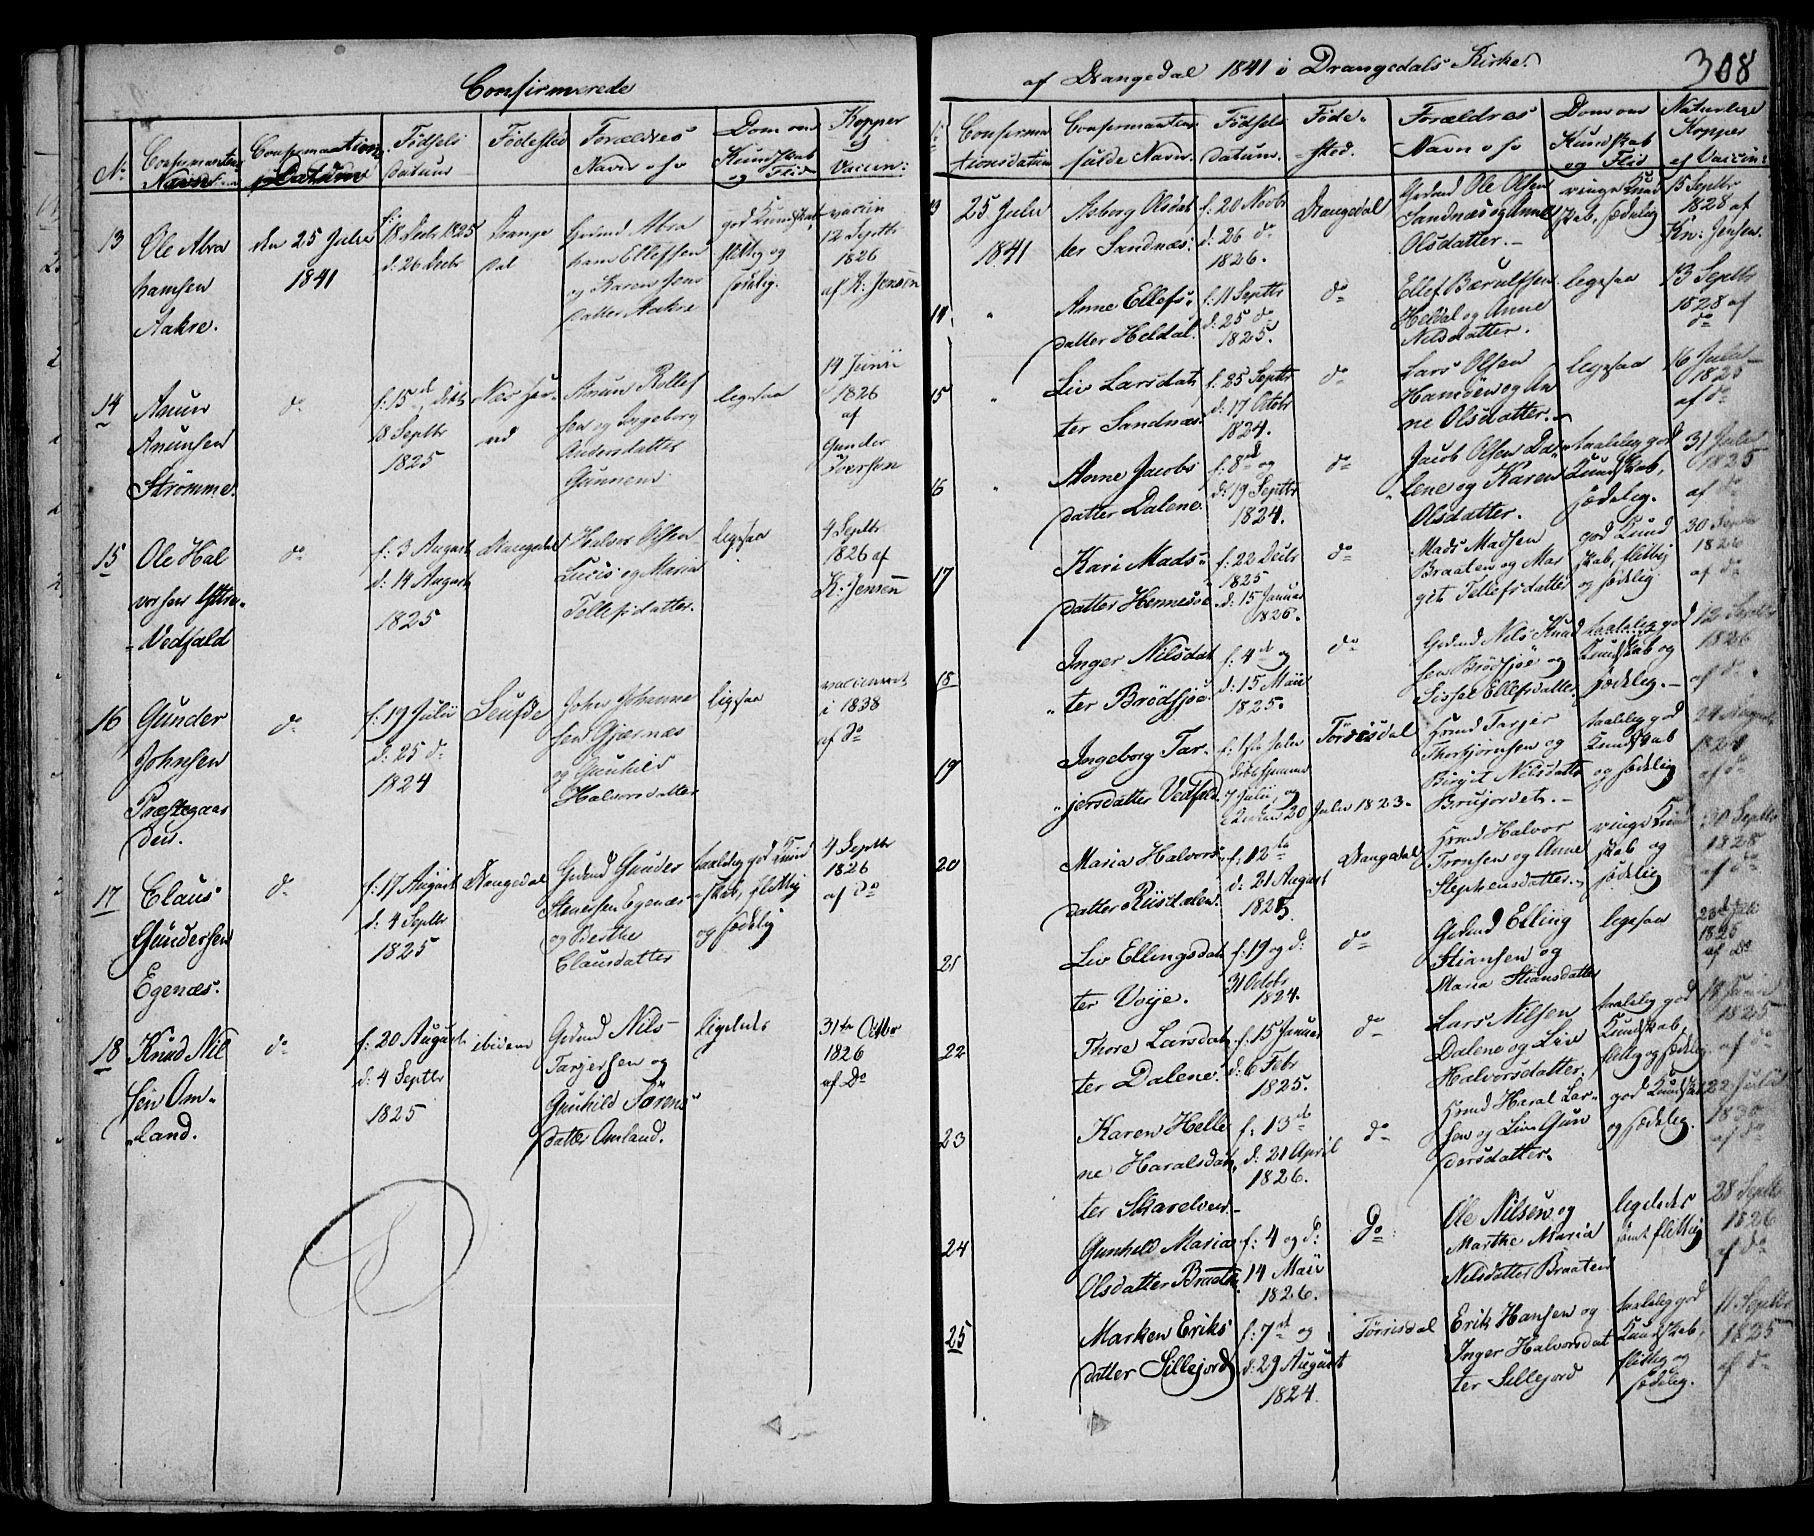 Confirmerede
No
Confirmantens
Navn
Confirmations
Datum
Fødsels
datum
Fødested
Forældres
Navn o s v
Dom om
Kundskab
og Flid
Kopper
og
Vaccin:
13
Ole Abra
hamsen
Aakre.
den 25 Julii
1841
f: 18 Decbr 1825
d: 26 Decbr
Drange
dal
Abra
ham Ellefsen
og Karen Jens
datter Aakre
god Kundskab
flittig og
sædelig.
vaccin
12 Septbr
1826
af K: Jensen
14
Anun
Anunsen
Strömme.
do
f: 15 d
18 Septbr
1825
Anun Rollef
sen og Ingeborg
Andersdatter
ligesaa
14 Junii
1826
af
Gunder
Iversen
15
Ole Hal
vorsen Yttre
Vedfald
do
f: 3 August
d: 14 August
1825
Drangedal
Halvor Olsen
og Maria
Tellefsdatter.
ligesaa
4 Septbr
1826 af
K: Jensen
16
Gunder
Johnsen
Præstegaar
den.
do
f: 19 Julii
d: 25 do
1824
John Johanne
sen Gjernæs
og Gunhild
Halvorsdatter
ligesaa
vaccineret
i 1838
af do
17
Claus
Gundersen
Egenæs.
do
f: 17 August
d: 4 Septbr
1825
Drangedal
Grdmd Gunder
Stenersen Egenæs
og Berthe
Clausdatter
taalelig god Kund
skab, flittig
og sædelig
4 Septbr
1826
af do
18
Knud Nil
sen Om
land.
do
f: 20 August
d: 4 Septbr
1825
ibidem
Grdmd Nils
Tarjersen og
Gunhild Sörens
datter Omland.
ligeledes
31te Octbr
1826
af Do
af Drangedal 1841 i Drangedals Kirke.
308
Confirma
tionsdatum
Confirmantens
fulde Navn.
Fødsels
datum.
Føde-
sted.
Forældres
Navn o s v
Dom om
Kundskab
og Flid
Naturlige
Kopper
el Vaccin:
13
25 Julii
1841
Aaborg Olsdat
ter Sandnæs.
f: 20 Novbr
d: 26 do
1826.
Drangedal
Grdmd Ole Olsen
Sandnæs og Anne
Olsdatter.
ringe Kund
skab, sædelig
15 Septbr
1828 af
Kn: Jensen.
14
"
Anne Ellefs
datter Heldal.
f: 11 Septbr
d: 25 do
1825.
do
Ellef Bærulfsen
Heldal og Anne
Nilsdatter.
ligesaa
13 Septbr
1828 af
do
15
"
Liv Larsdat
ter Sandnæs
f: 25 Septbr
d: 17 Octobr
1824.
do
Lars Olsen
og An
ne Olsdatter.
ligesaa
16 Julii
1825
af do
16
"
Anne Jacobs
datter Dalene.
f: 8de og
d: 19 Septbr
1824.
do
Jacob Olsen Da
lene og Karen
Olsdatter.
taalelig god
Kundskab,
sædelig.
31 Julii
1825
af do
17
Kari Mads
datter Henneseie
f: 22 Decbr
1825
d: 15 Januar
1826.
do
Mads Madsen
Braaten og Mar
git Tellefsdatter
god Kund
skab, flittig
og sædelig.
30 Septbr
1826
af do
18
Inger Nilsdat
ter Brödsjöe
f: 4de og
d: 15 Maii
1825.
do
Grdmd Nils Knud
sen Brödsjöe og
Sissel Ellefsdatter
taalelig god
Kundskab og
sædelig.
12 Septbr
1826
af do
19
Ingeborg Tar
jersdatter Vedfald
7 Julii og
20 Julii 1823.
Törrisdal
Hsmd Tarjer
Thorbjörnsen og
Birgit Nilsdatter
Brujordet.
taalelig god
Kundskab
og sædelig
24 August
1824
af do
20
Maria Halvors
datter Riisdalen.
f: 12te
d: 21 August
1825.
Drangedal
Hsmd Halvor
Tronsen og Anne
Stephensdatter.
ringe Kund
skab og
sædelig
20 Septbr
1828
af do
21
Liv Ellingsdat
ter Voje.
f: 19 og d:
31 Octobr
1824.
do
Grdmd Elling
Stiansen og
Maria Stiansdatter
ligesaa
23de Julii
1825
af Do
22
Thore Larsdat
ter Dalene.
f: 15 Januar
d: 6 Febr
1825.
do
Lars Nilsen
Dalene og Liv
Halvorsdatter.
taalelig god
Kundskab,
flittig og sædelig
18 Junii
1825
af do
23
Karen Helle
ne Haralsdat
ter Skarelven
f: 13de
d: 21 April
1826.
do
Hsmd Haral Lar
sen og Liv Gun
dersdatter.
god Kundskab
og sædelig.
22 Julii
1830
af do
24
Gunhild Maria
Olsdatter Braaten
f: 4 og d:
14 Maii
1826.
Do
Ole Nilsen og
Marthe Maria
Nilsdatter Braaten
ligeledes
samt flittig
28 Septbr
1826
af do
25
Marken Eriks
datter Sillejord
f: 7de og
d: 29 August
1824.
Törrisdal
Erik Hansen og
Inger Halvorsdat
ter Sillejord
taalelig god
Kundskab,
flittig og
sædelig.
11 Septbr
1825
af do